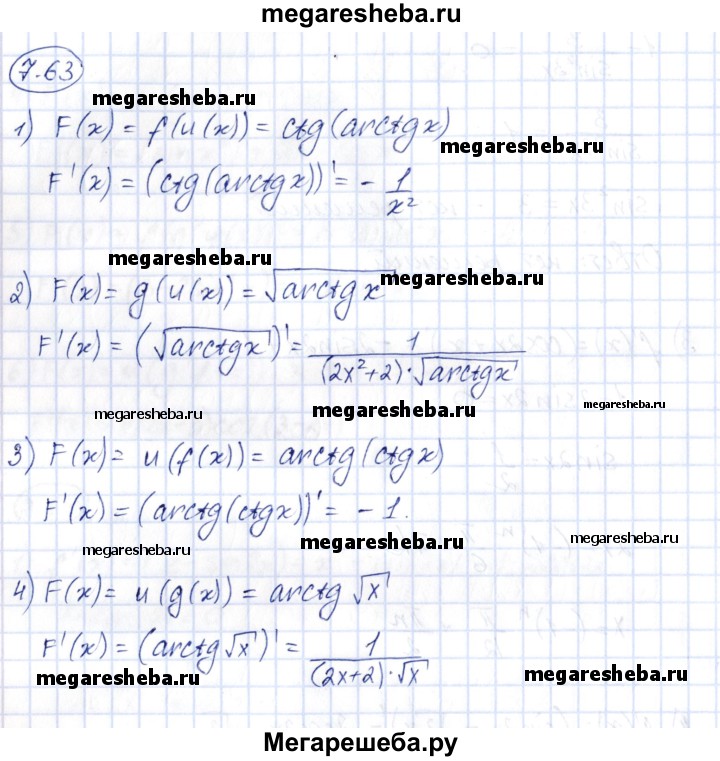 megaresheba.ru
7.63
megaresheba.ru
1) F(x) = f(u(x)) = ctg(arctgx)
megaresheba.ru
F'(x) = (ctg(arctgx))' = - 1/x²
megaresheba.ru
2) F(x) = g(u(x)) = √arctgx
megaresheba.ru
F'(x) = (√arctgx)' = 1/((2x²+2)·√arctgx)
megaresheba.ru
megaresheba.ru
megaresheba.ru
3) F(x) = u(f(x)) = arctg(ctgx)
F'(x) = (arctg(ctgx))' = -1.
megaresheba.ru
megaresheba.ru
4) F(x) = u(g(x)) = arctg √x
F'(x) = (arctg√x)' = 1/((2x+2)·√x)
megaresheba.ru
megaresheba.ru
Мегарешеба.ру